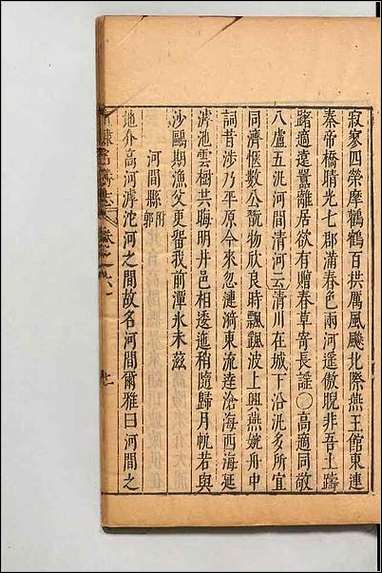 寂寥四榮摩鶴鶴百拱厲風飈北際燕王館東連
秦帝橋晴光七郡滿春色兩河遥傲睨非吾土躊
躇適遠囂離居欲有贈春草寄長謡〇高適同敬
八盧五汎河間清河云清川在城下沿汎多所宜
同濟愜數公翫物欣良時飄飄波上興燕婉舟中
詞昔涉乃平原今來忽漣漪東流達滄海西海延
滹池雲樹共晦明井邑相逶迤稍隨歸月帆若與
沙鷗期漁父更留我前潭水未滋
河間縣附郭
地介高河滹沱河之間故名河間爾雅曰河間之